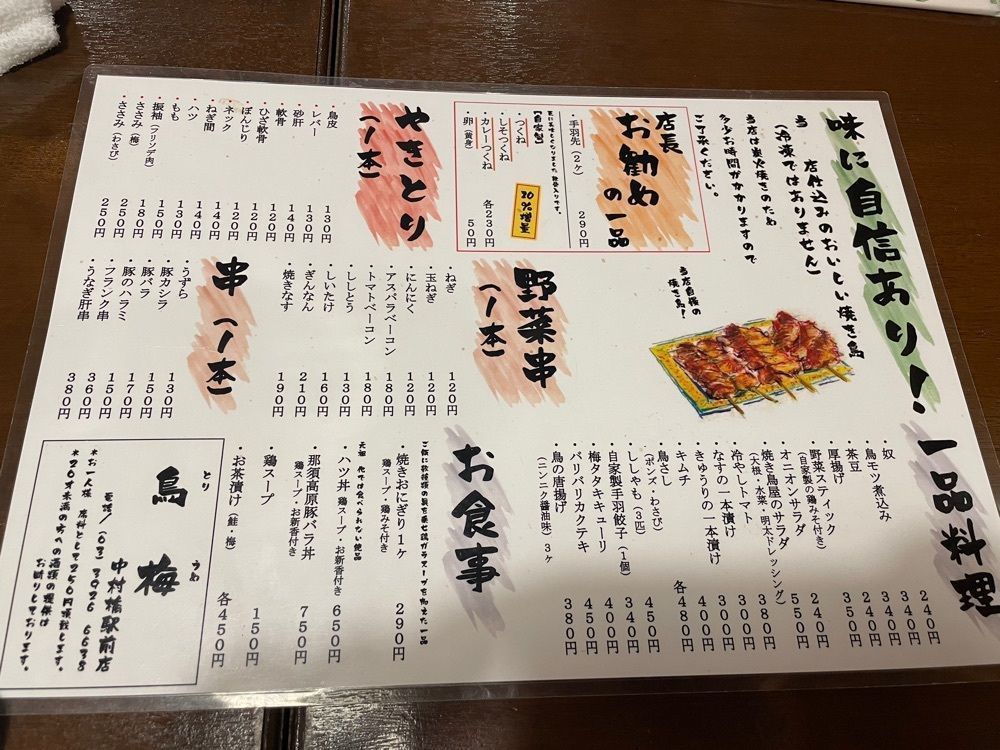 味に自信あり!
当店仕込みのおいしい焼き鳥
(冷凍ではありません)
当店は炭火焼きのため
多少お時間がかかりますので
ご了承ください。
当店自慢の
焼き鳥!
店長
お勧め
の一品
・手羽先(2ヶ) 290円
更に美味しくなりました
【自家製】
・つくね
・しそつくね
・カレーつくね 各230円
・卵(黄身) 50円
20%増量
やきとり
(1本)
・鳥皮 130円
・レバー 130円
・砂肝 140円
・軟骨 120円
・ひざ軟骨 120円
・ぼんじり 120円
・ネック 120円
・ねぎ間 140円
・ハツ 140円
・もも 130円
・振袖(フリソデ肉) 150円
・ささみ(梅) 180円
・ささみ(わさび) 250円
250円
野菜串
(1本)
・ねぎ 120円
・玉ねぎ 120円
・にんにく 120円
・アスパラベーコン 180円
・トマトベーコン 180円
・ししとう 130円
・しいたけ 160円
・ぎんなん 210円
・焼きなす 190円
串(1本)
・うずら 130円
・豚カシラ 150円
・豚バラ 170円
・豚のハラミ 150円
・フランク串 360円
・うなぎ肝串 380円
一品料理
・奴 240円
・鳥モツ煮込み 340円
・茶豆 340円
・厚揚げ 240円
・野菜スティック 350円
(自家製の鶏みそ付き)
・オニオンサラダ 240円
・焼き鳥屋のサラダ 550円
(大根・水菜・明太ドレッシング)
・冷やしトマト 380円
・なすの一本漬け 300円
・きゅうりの一本漬け 300円
・キムチ 400円
・鳥さし 各480円
(ポンズ・わさび)
・ししゃも(3匹) 450円
・自家製手羽餃子(1個) 340円
・梅タタキキューリ 400円
・バリバリカクテキ 450円
・鳥の唐揚げ 380円
(ニンニク醤油味)3ヶ
お食事
ご飯に数種類の具を乗せ鶏ガラスープを加えた一品
・焼きおにぎり1ヶ 290円
鶏スープ・鶏みそ付き
元祖 他では食べられない絶品
・ハツ丼 650円
鶏スープ・お新香付き
・那須高原豚バラ丼 750円
鶏スープ・お新香付き
・鶏スープ 150円
・お茶漬け(鮭・梅) 各450円
鳥梅
とり
うめ
中村橋駅前店
電話/(03)3926 6638
*お一人様 席料として250円頂戴します。
*20才未満の方への酒類の提供は
お断りしております。